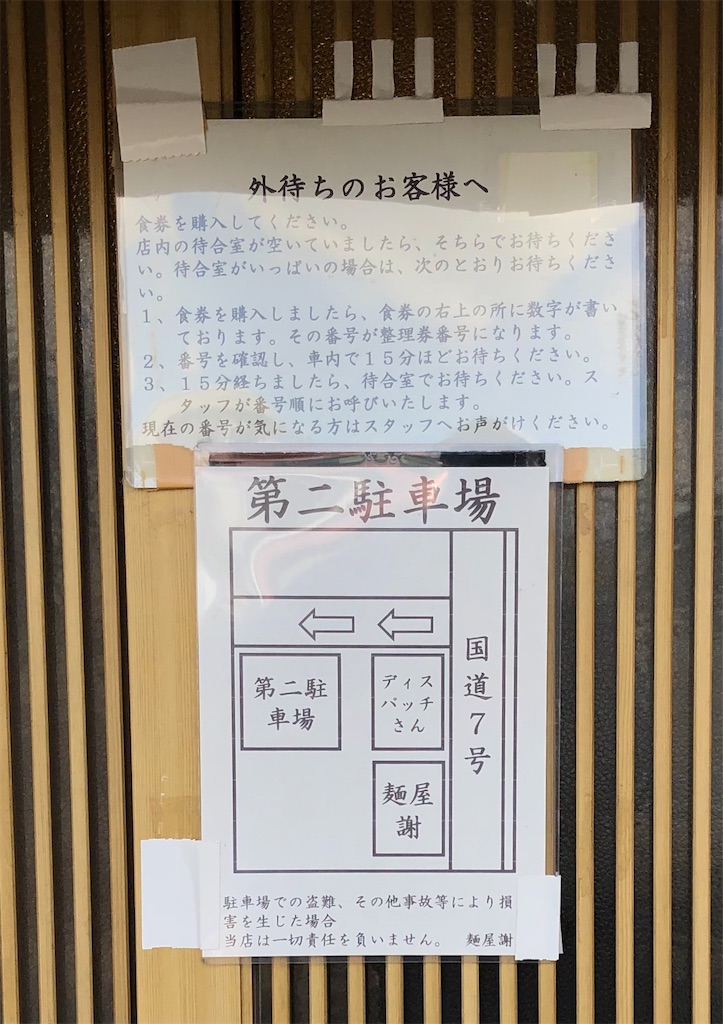 外待ちのお客様へ
食券を購入してください。
店内の待合室が空いていましたら、そちらでお待ちくださ
い。待合室がいっぱいの場合は、次のとおりお待ちくださ
い。
１、食券を購入しましたら、食券の右上の所に数字が書い
ております。その番号が整理券番号になります。
２、番号を確認し、車内で１５分ほどお待ちください。
３、１５分経ちましたら、待合室でお待ちください。ス
タッフが番号順にお呼びいたします。
現在の番号が気になる方はスタッフへお声がけください。
第二駐車場
国道７号
第二駐
車場
ディス
パッチ
さん
麺屋
謝
駐車場での盗難、その他事故等により損
害を生じた場合
当店は一切責任を負いません。　麺屋謝